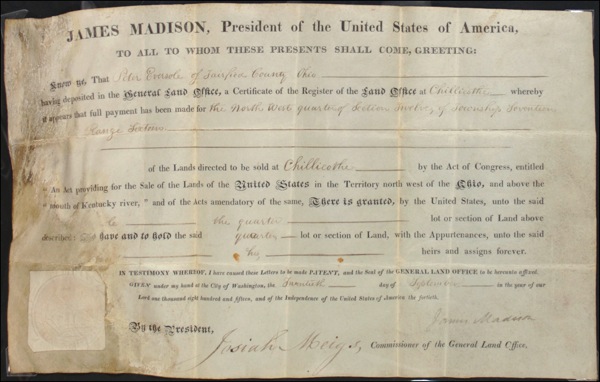 JAMES MADISON, President of the United States of America,
TO ALL TO WHOM THESE PRESENTS SHALL COME, GREETING:
Know ye, That Peter Eversole of Fairfield County Ohio
having deposited in the General Land Office, a Certificate of the Register of the Land Office at Chillicothe whereby
it appears that full payment has been made for the North West quarter of Section Twelve, of Township Seventeen
Range Sixteen
of the Lands directed to be sold at Chillicothe by the Act of Congress, entitled
“An Act providing for the Sale of the Lands of the United States in the Territory north west of the Ohio, and above the
“mouth of Kentucky river,” and of the Acts amendatory of the same, There is granted, by the United States, unto the said
the quarter lot or section of Land above
described: To have and to hold the said quarter lot or section of Land, with the Appurtenances, unto the said
his heirs and assigns forever.
IN TESTIMONY WHEREOF, I have caused these Letters to be made PATENT, and the Seal of the GENERAL LAND OFFICE to be hereunto affixed.
GIVEN under my hand at the City of Washington, the Twentieth day of September in the year of our
Lord one thousand eight hundred and fifteen, and of the Independence of the United States of America the fortieth.
James Madison
By the President,
Josiah Meigs, Commissioner of the General Land Office.